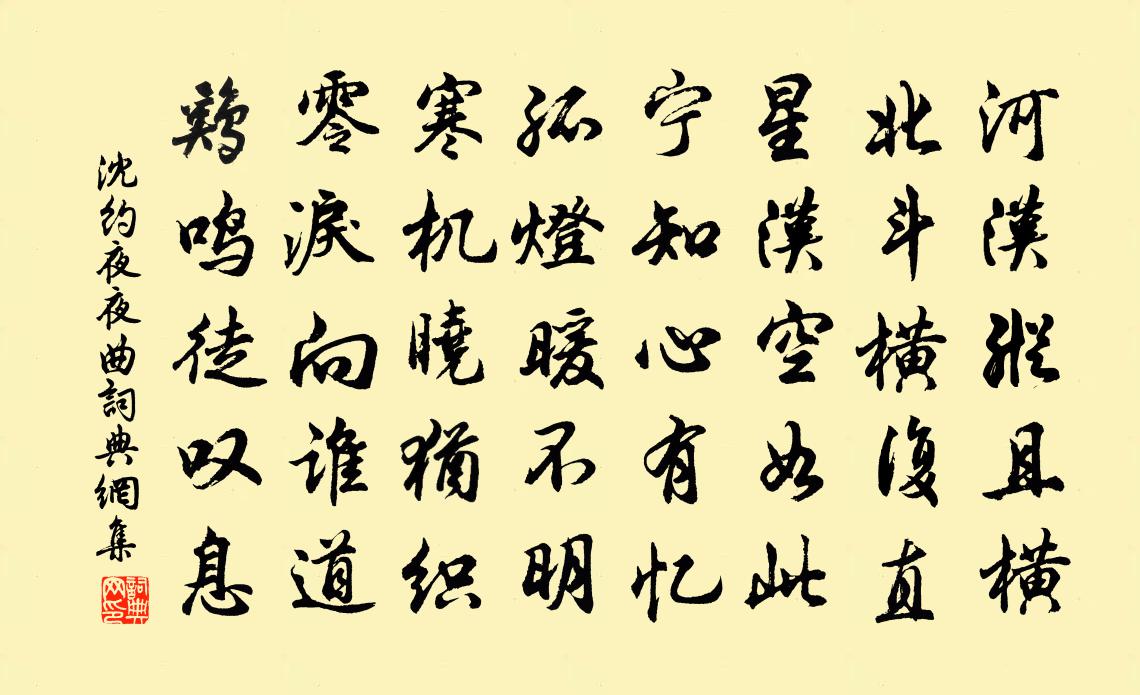 河漢縱且橫
北斗橫復直
星漢空如此
宁知心有忆
孤燈暖不明
寒机曉猶织
零淚向誰道
鷄鸣徒叹息
沈约夜夜曲詞典網集
詞典网印